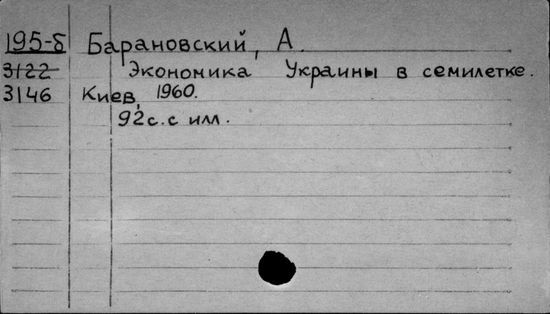 195-б Барановский, А.
3122 Экономика Украины в семилетке.
3146 Киев, 1960.
92с. с илл.